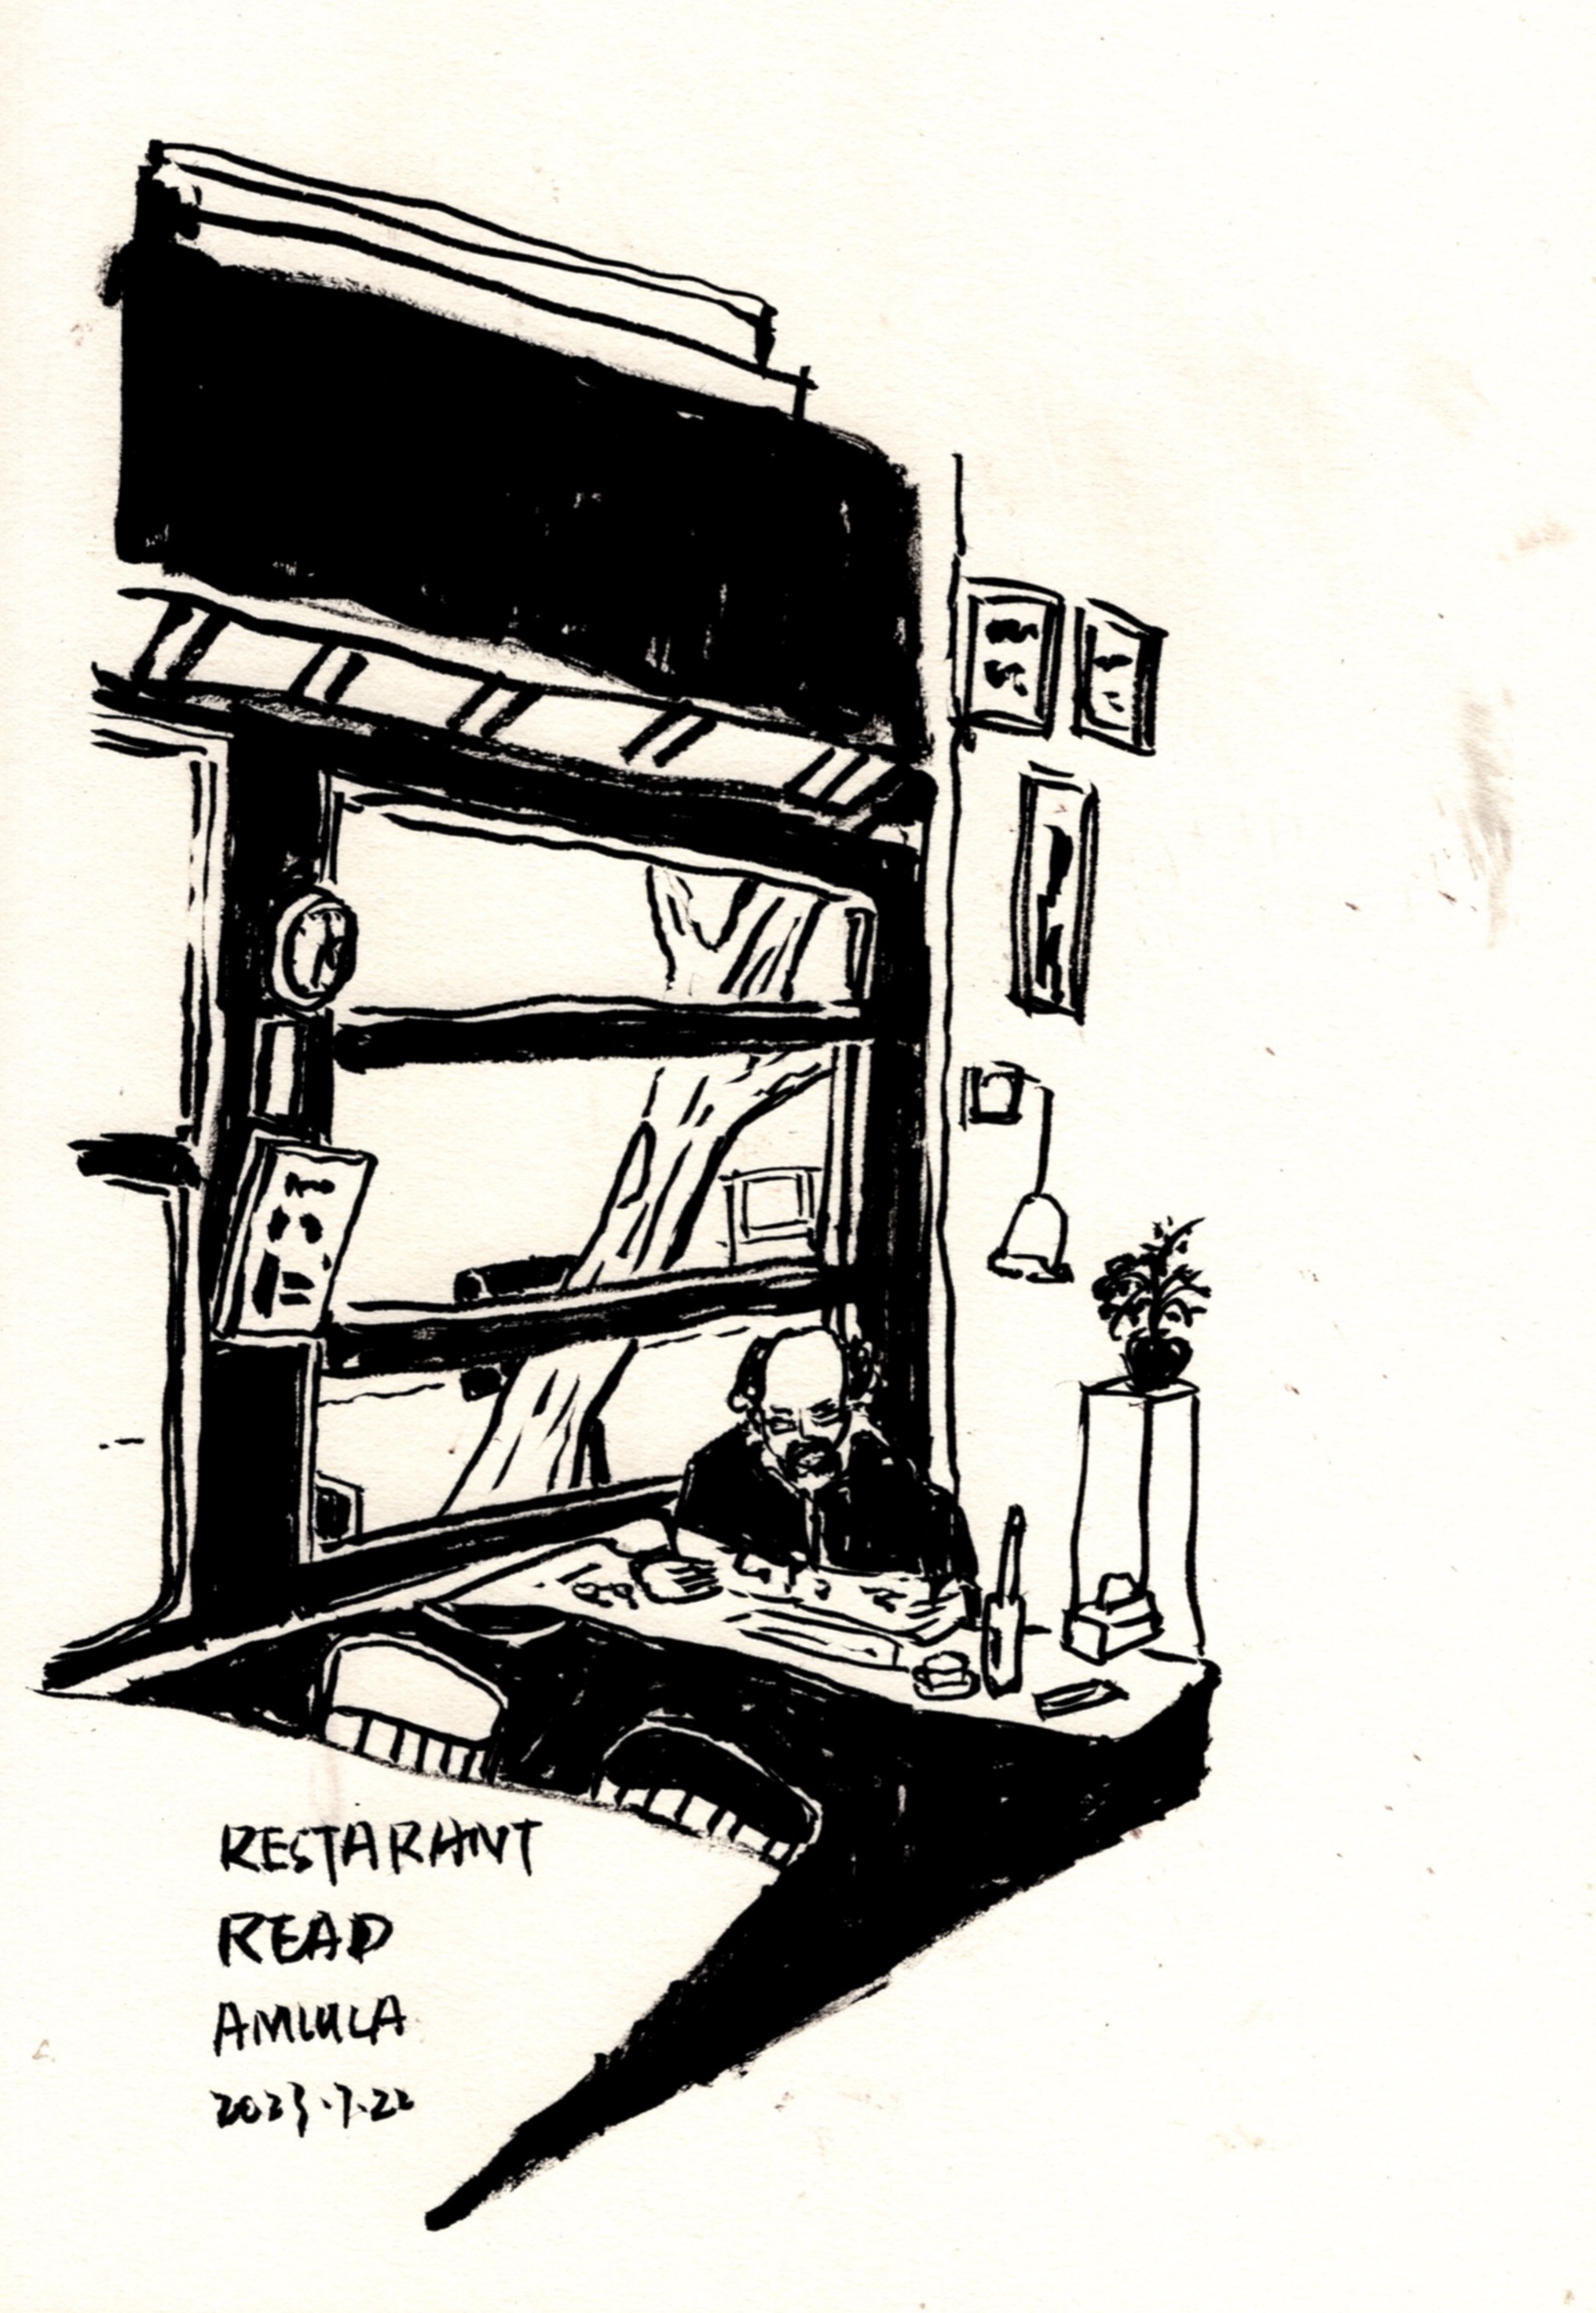 RESTARANT
READ
AMLULA
2023.7.22